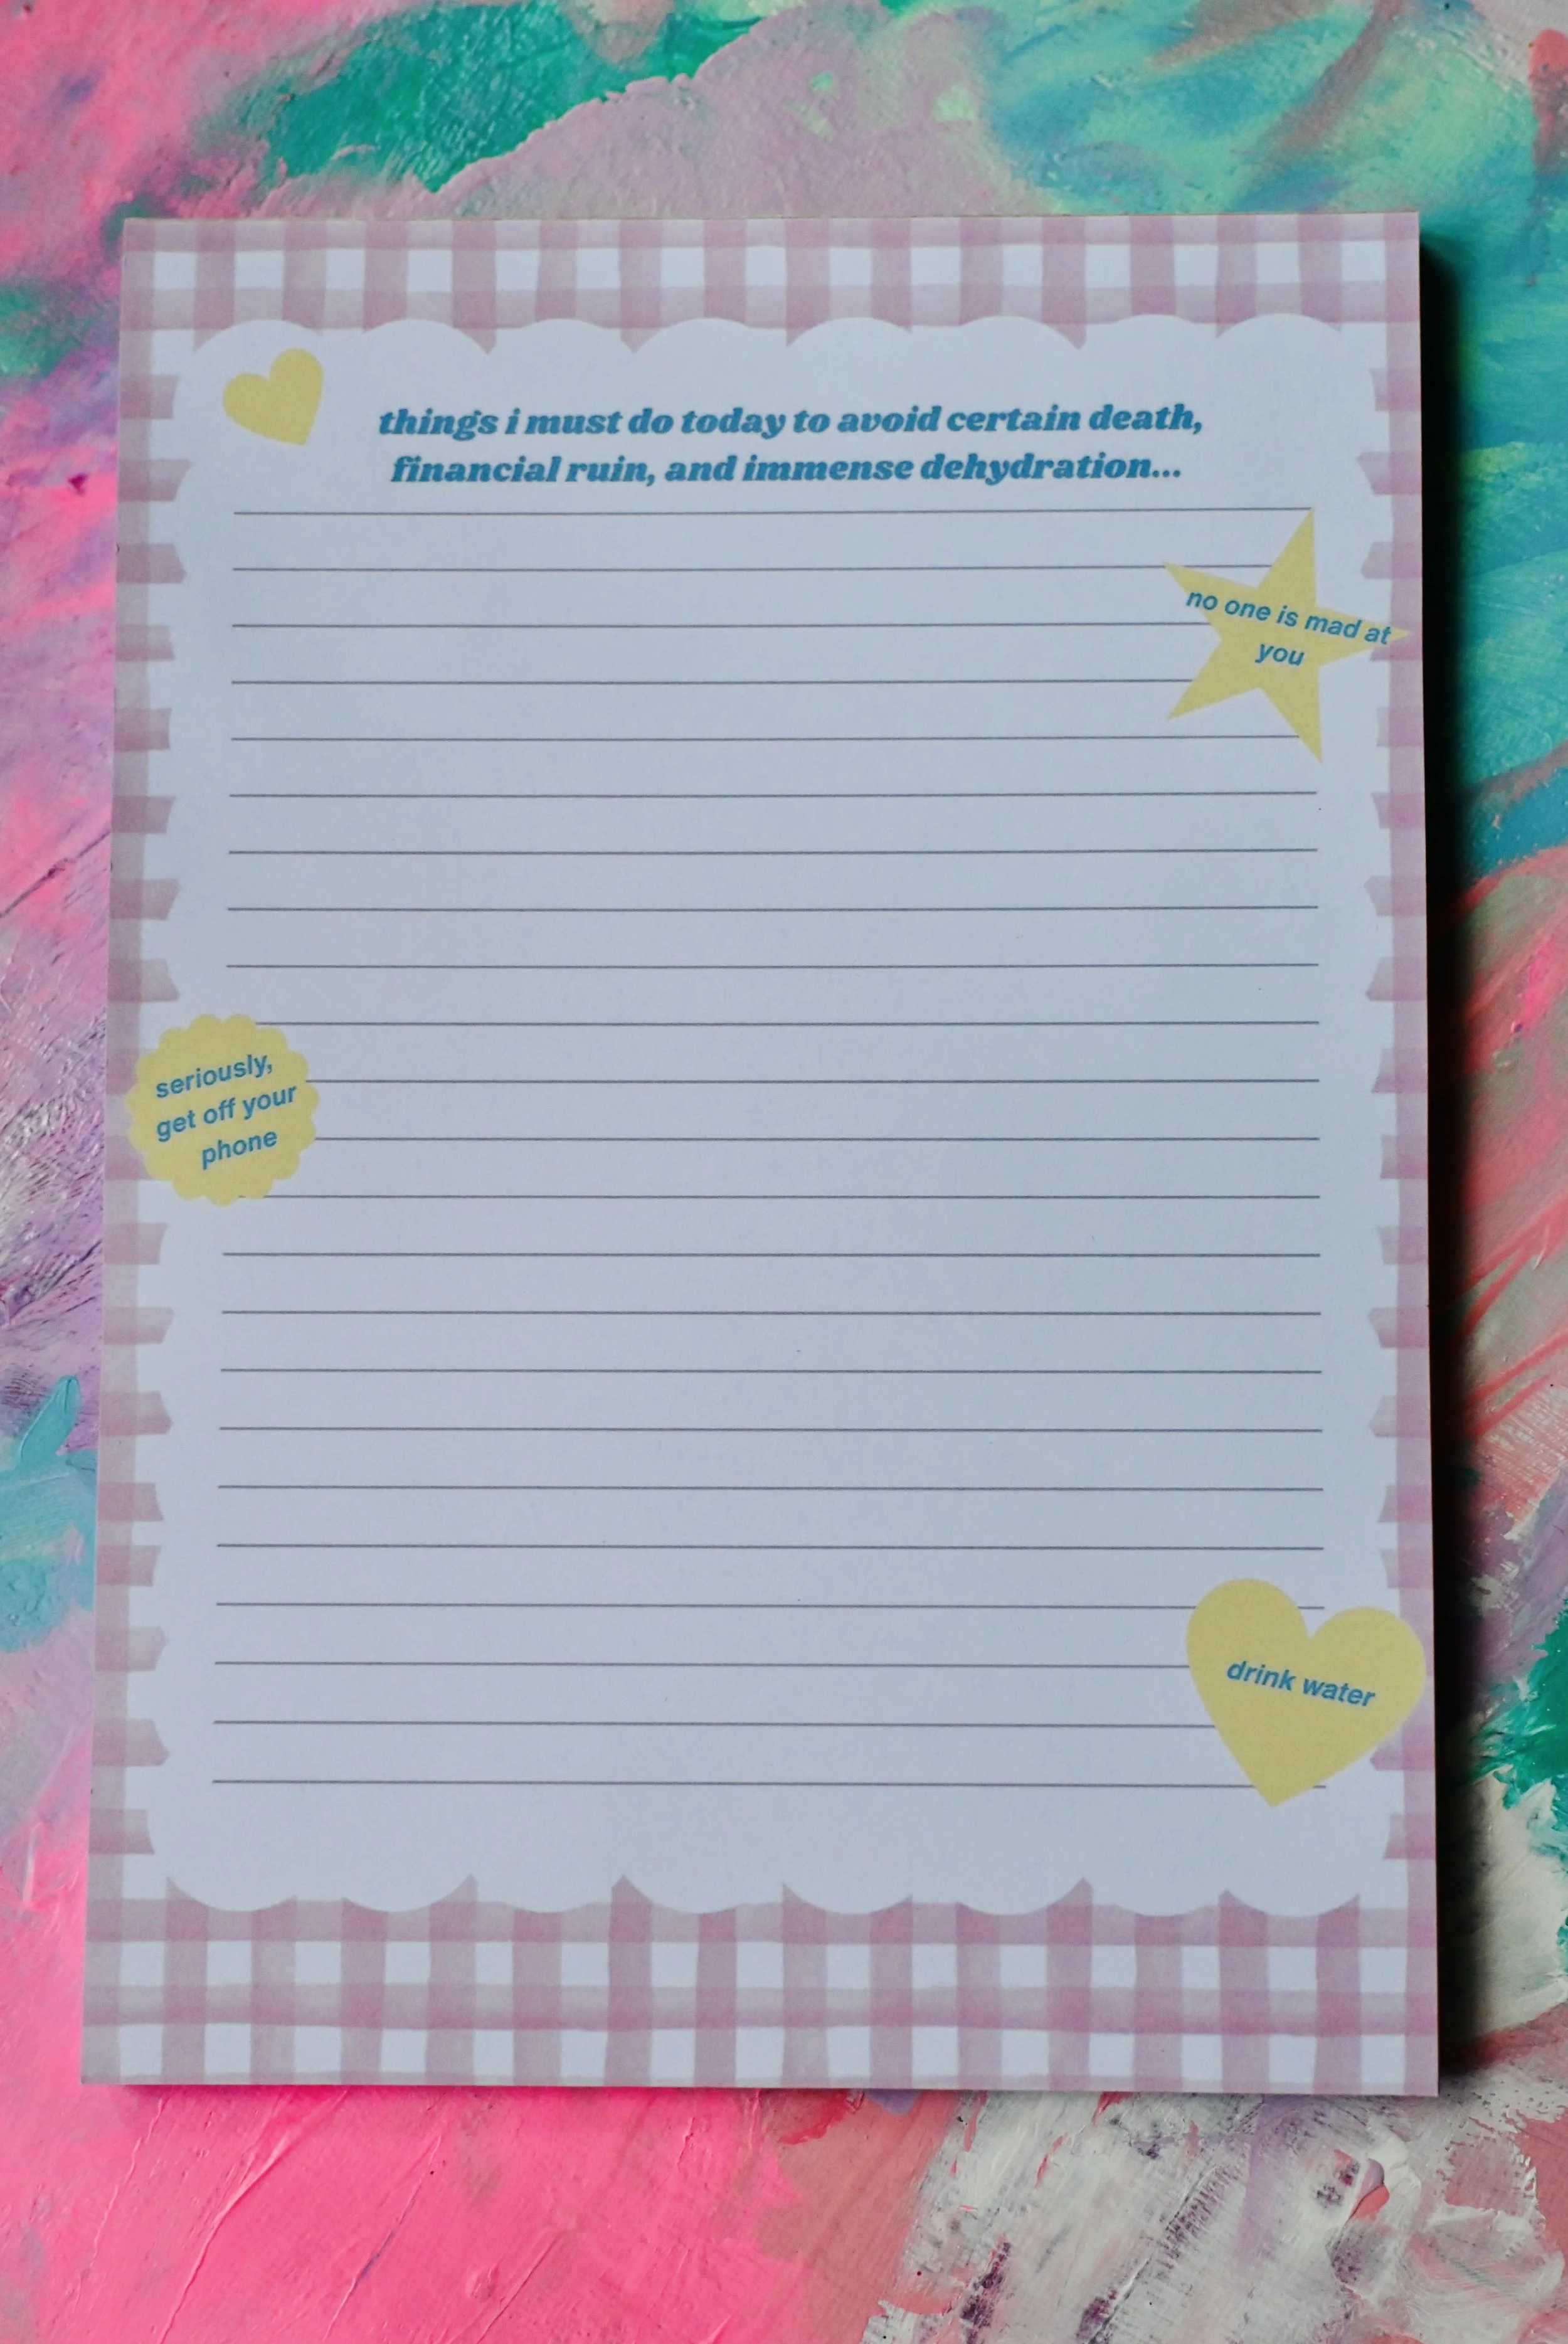 things i must do today to avoid certain death,
financial ruin, and immense dehydration...
no one is mad at
you
seriously,
get off your
phone
drink water